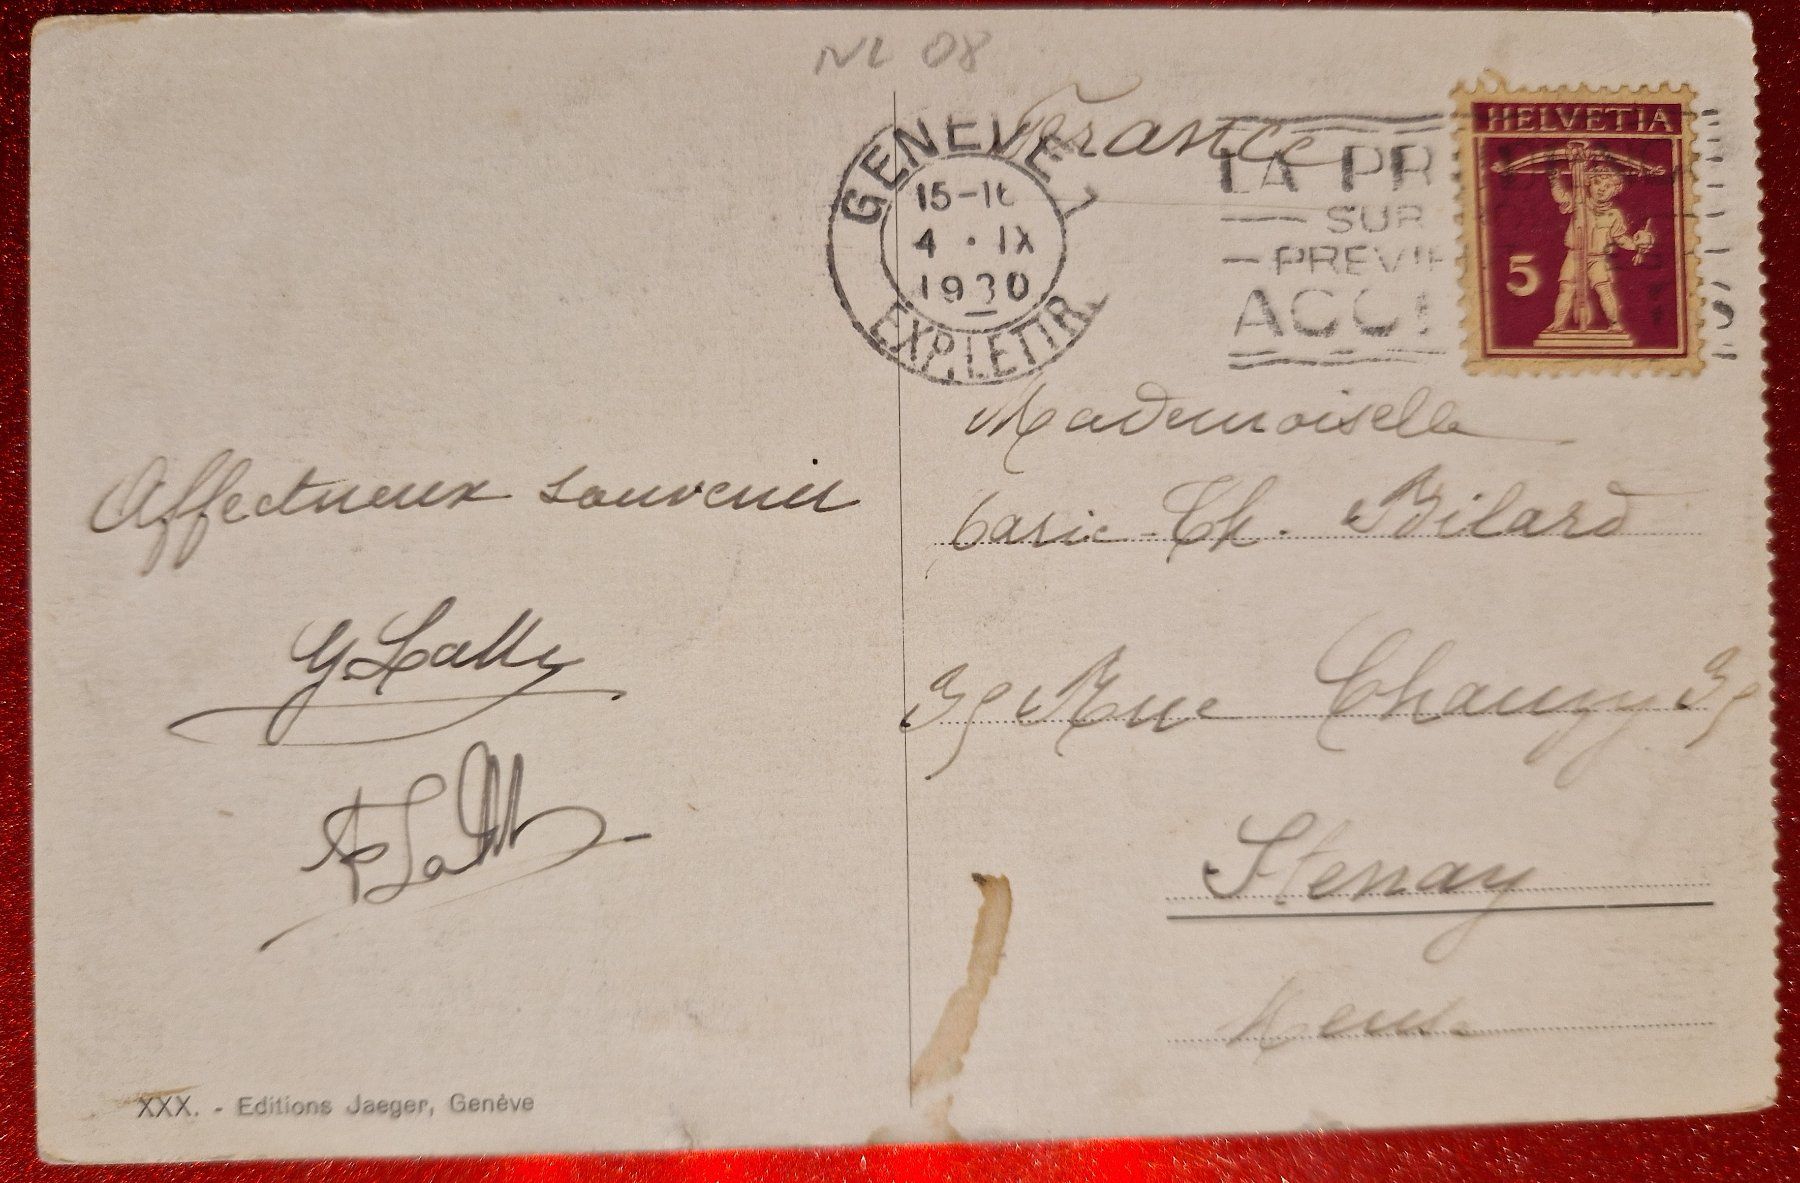 NL 08
France
GENEVE 1
15-16
4 . IX
1930
EXP. LETTR.
LA PR
SUR
PREVIE
ACCI S
HELVETIA
5
Affectueux souvenir
Mademoiselle
Th. Bilard
39 Rue Chanzy 39
Stenay
Meuse
XXX. - Editions Jaeger, Genève